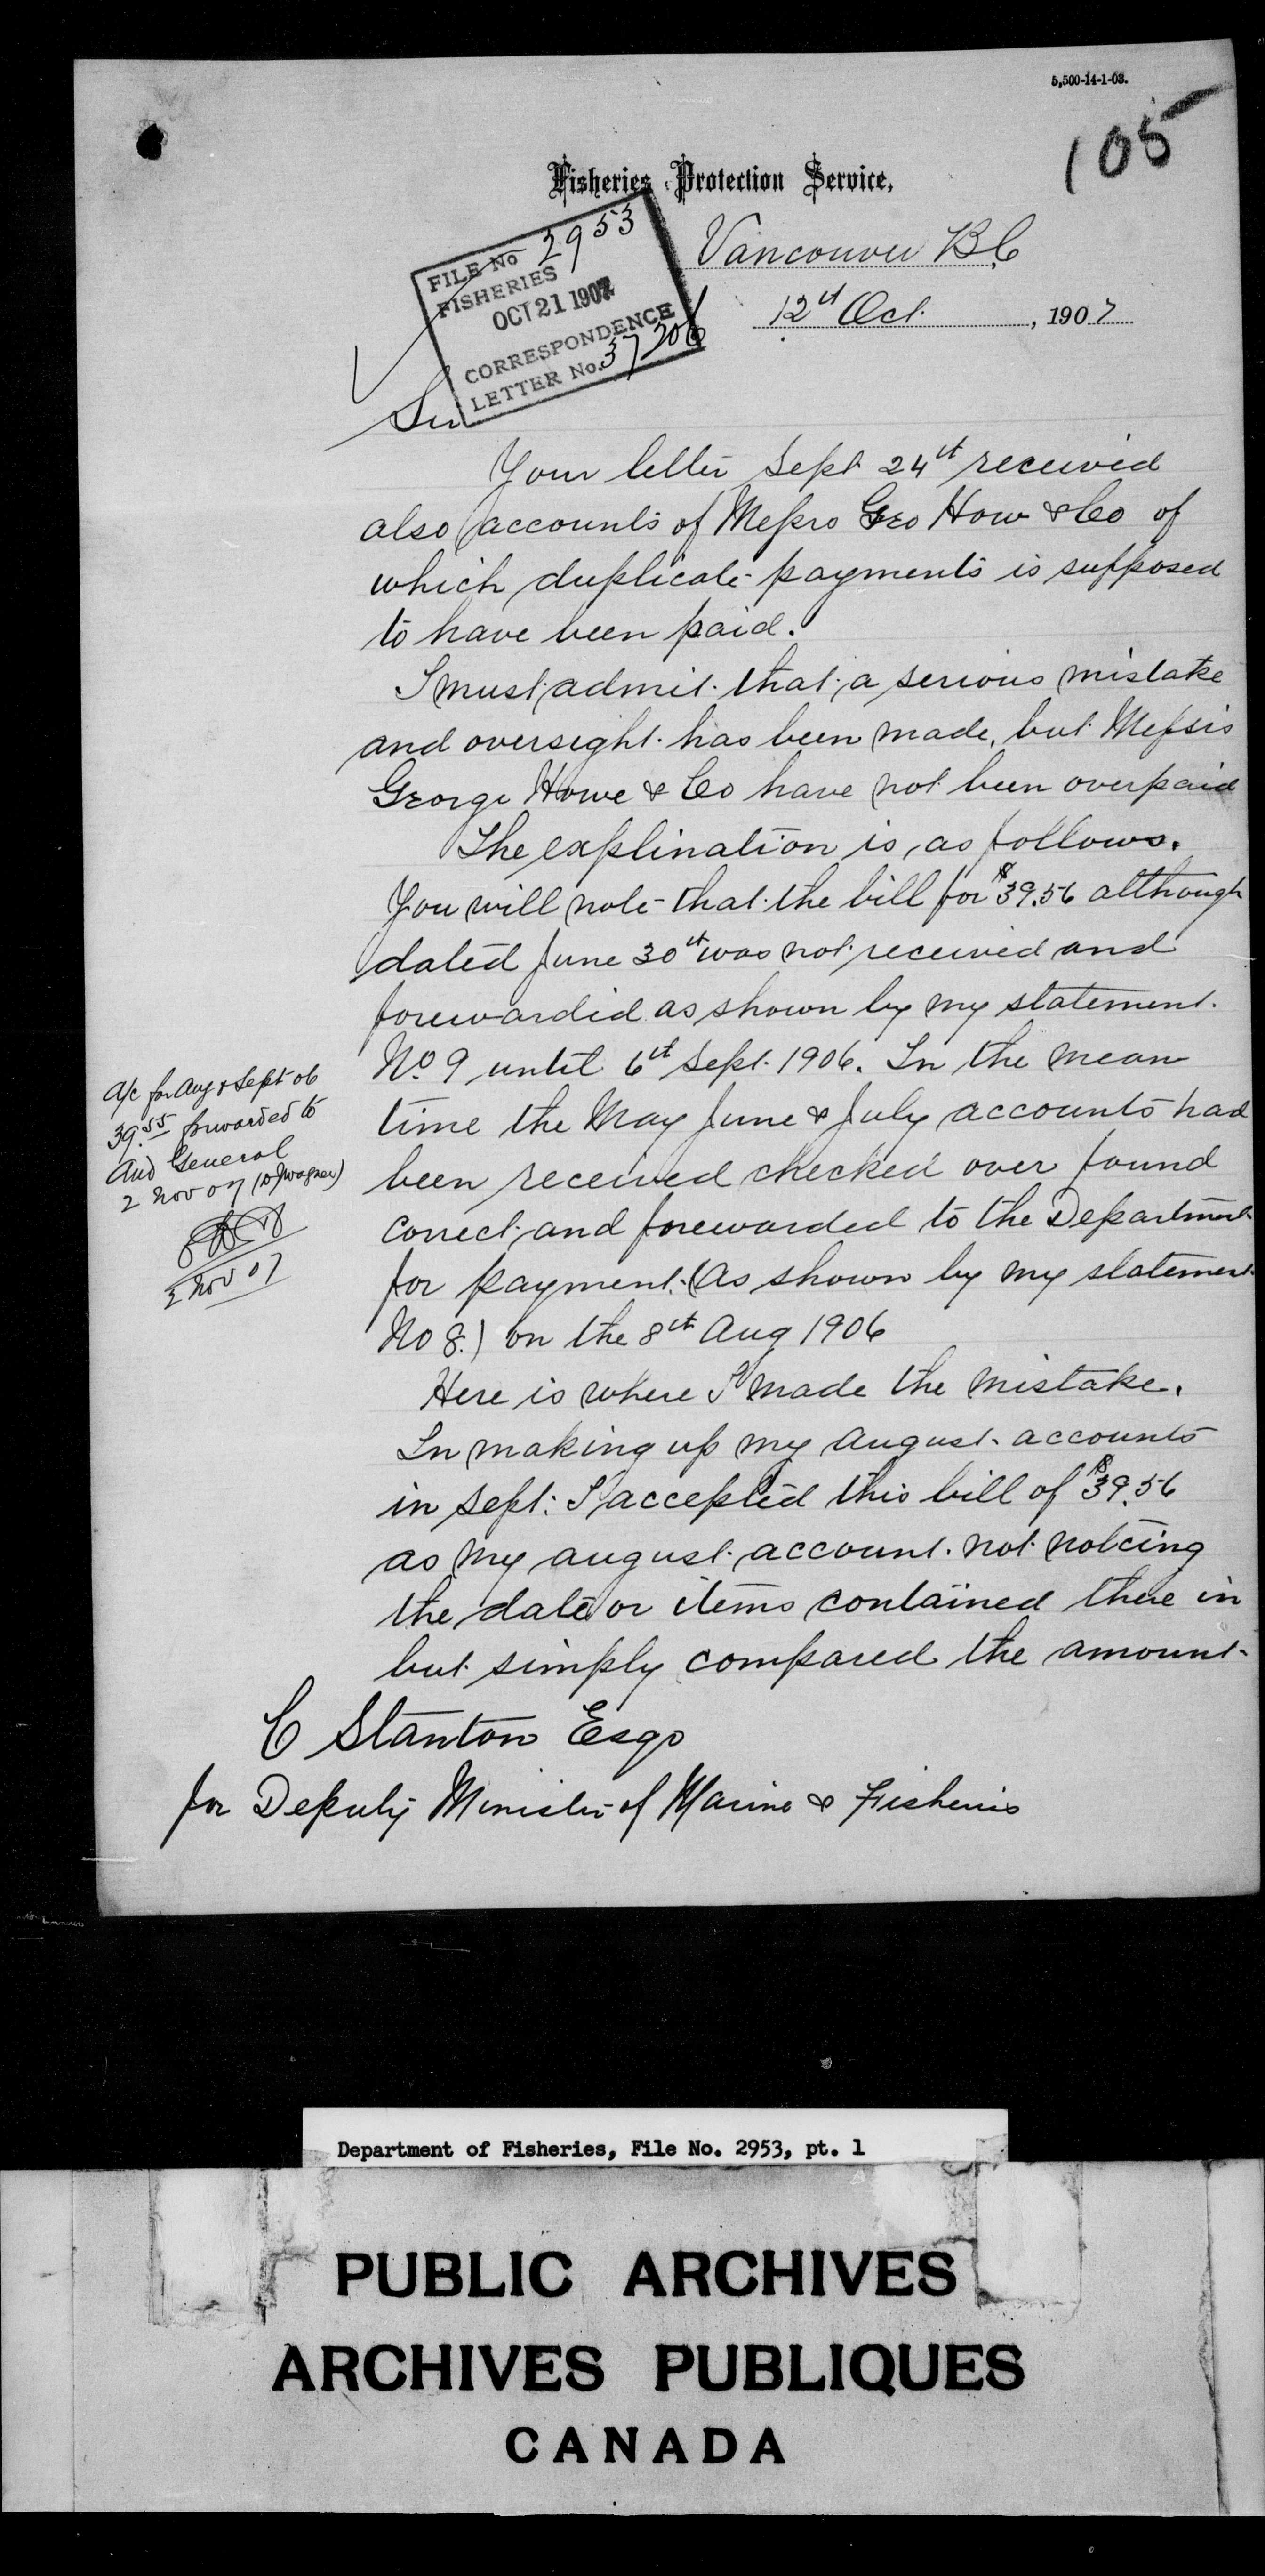 5,500-14-1-03.
105
Fisheries Protection Service,
FILE No 2953
FISHERIES
OCT 21 1907
CORRESPONDENCE
LETTER No. 37206
Vancouver B.C
12th Oct. , 1907
Sir
Your letter Sept 24th received
also accounts of Messrs Geo How & Co of
which duplicate payments is supposed
to have been paid.
I must admit that a serious mistake
and oversight has been made, but Messrs
George Howe & Co have not been overpaid
The explination is, as follows.
You will note that the bill for $39.56 although
dated June 30th was not received and
forewarded as shown by my statement.
No. 9 until 6th Sept. 1906. In the mean
time the May June & July accounts had
been received checked over found
correct and forewarded to the Department
for payment. (As shown by my statement
No 8.) on the 8th Aug 1906
Here is where I made the mistake.
In making up my August accounts
in Sept. I accepted this bill of $39.56
as my August account. not notcing
the date or items contained there in
but simply compared the amount.
a/c for Aug & Sept 06
39.55 forwarded to
Aud General
2 Nov 07
2 Nov 07
C Stanton Esqr
for Deputy Minister of Marine & Fisheries
Department of Fisheries, File No. 2953, pt. 1
PUBLIC ARCHIVES
ARCHIVES PUBLIQUES
CANADA